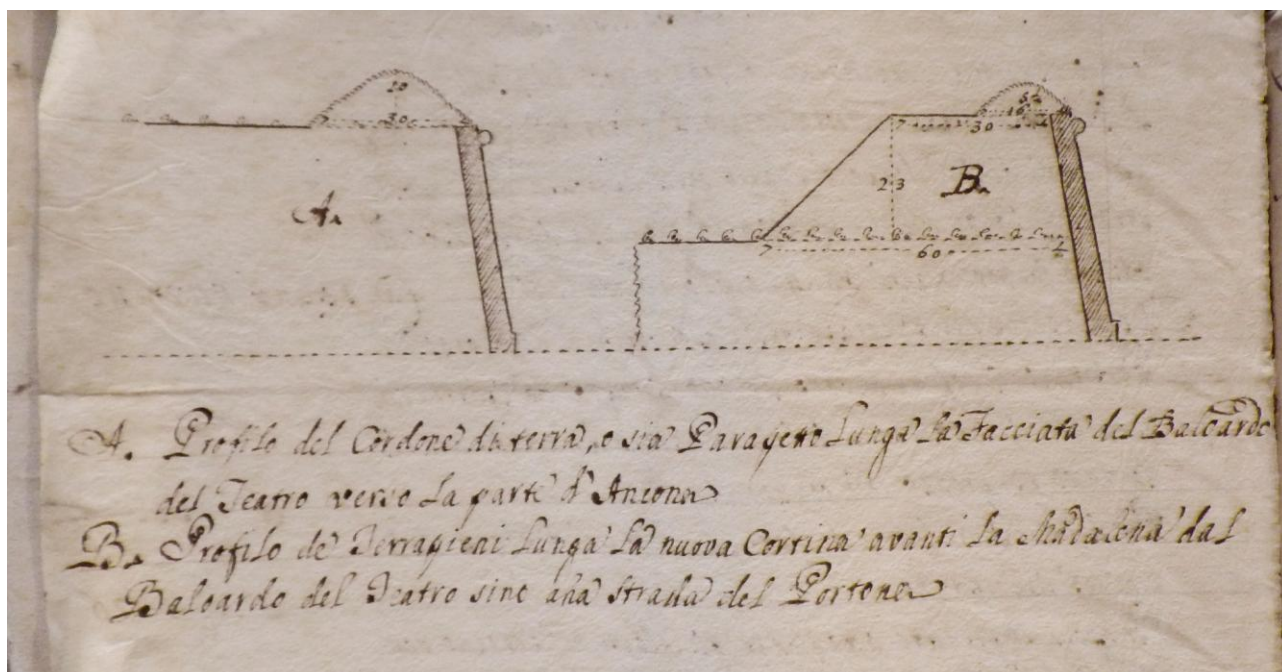 20
30
A.
5 1/2
16
30
23
B.
60
A. Profilo del Cordone di terra, o sia Parapetto Lunga la Facciata del Baloardo
del Teatro verso la parte d'Ancona
B. Profilo de Terrapieni Lunga la nuova Cortina avanti la Madalena dal
Baloardo del Teatro sino alla strada del Portone